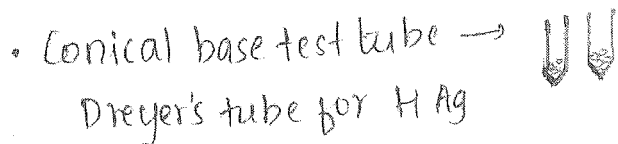 • Conical base test tube →
Dreyer's tube for H Ag